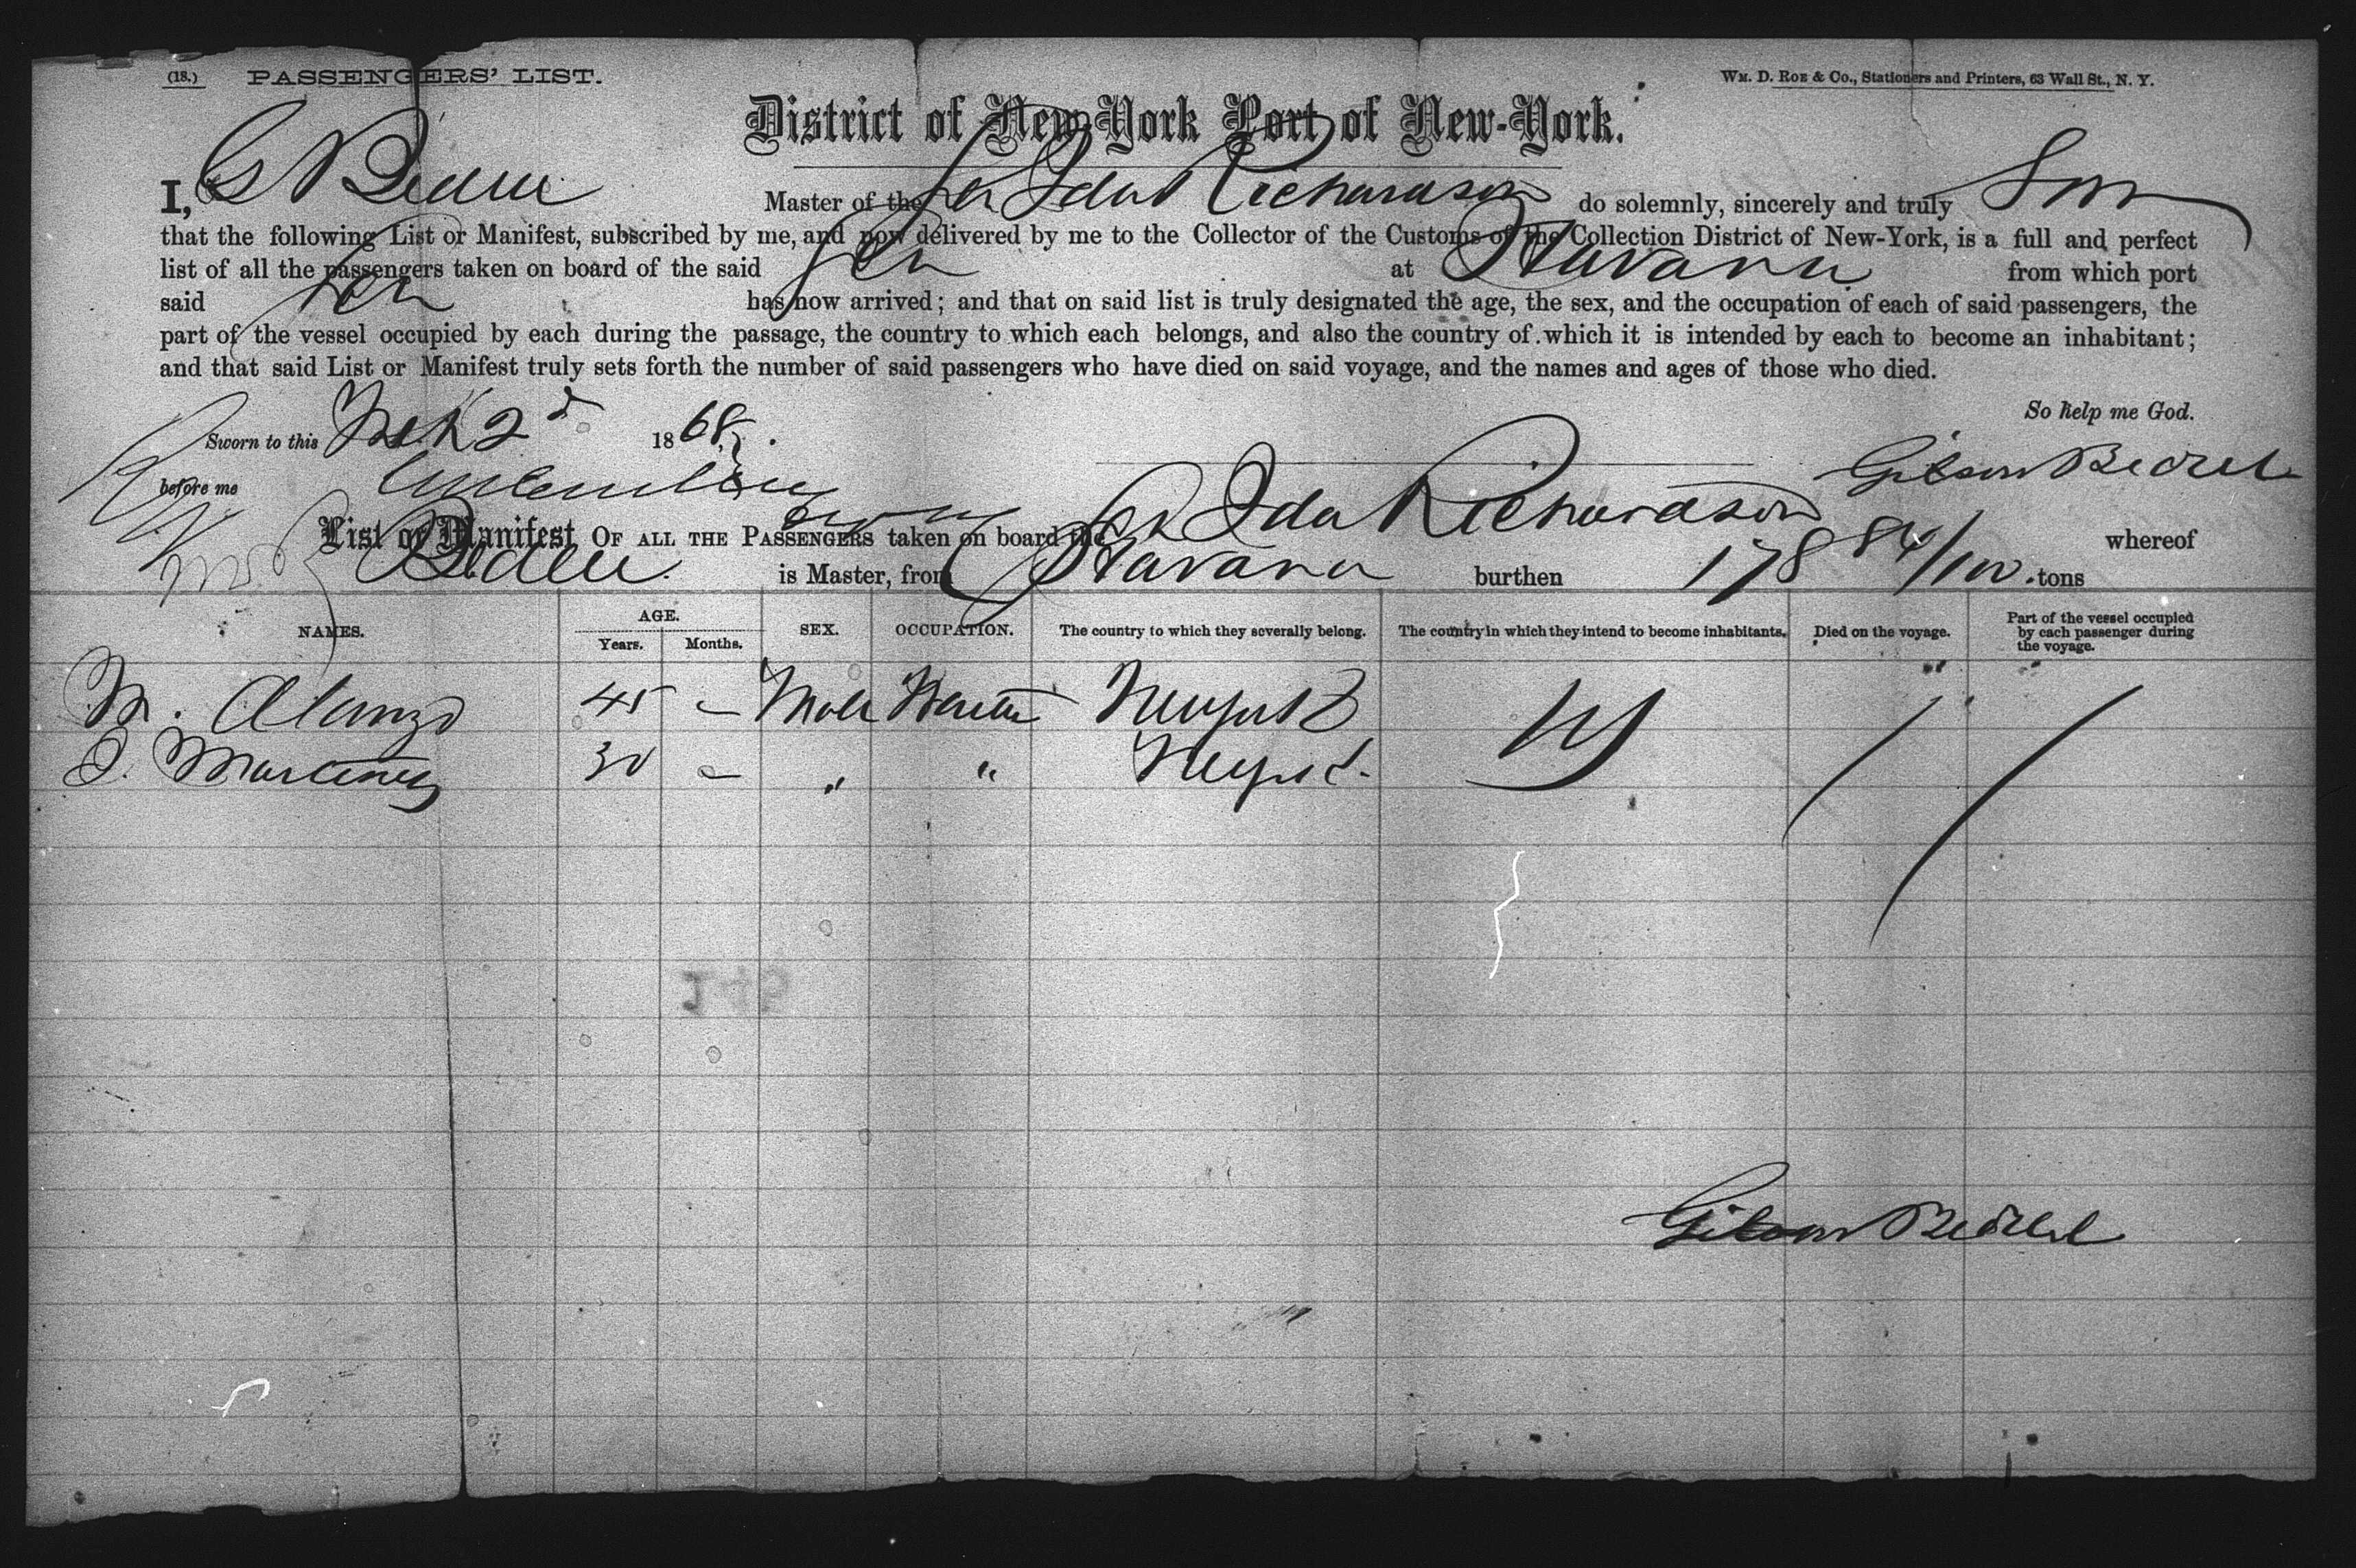 (18.) PASSENGERS' LIST. Wm. D. Roe & Co., Stationers and Printers, 63 Wall St., N. Y.
District of New-York Port of New-York.
I, G Master of the Sch Ida Richardson do solemnly, sincerely and truly
that the following List or Manifest, subscribed by me, and now delivered by me to the Collector of the Customs of the Collection District of New-York, is a full and perfect
list of all the passengers taken on board of the said Sch at Havana from which port
said Sch has now arrived; and that on said list is truly designated the age, the sex, and the occupation of each of said passengers, the
part of the vessel occupied by each during the passage, the country to which each belongs, and also the country of which it is intended by each to become an inhabitant;
and that said List or Manifest truly sets forth the number of said passengers who have died on said voyage, and the names and ages of those who died.
So help me God.
Sworn to this 2d 1868.
before me
List or Manifest OF ALL THE PASSENGERS taken on board the Sch Ida Richardson whereof
is Master, from Havana burthen 178 84/100 tons
NAMES. AGE. Years. Months. SEX. OCCUPATION. The country to which they severally belong. The country in which they intend to become inhabitants. Died on the voyage. Part of the vessel occupied by each passenger during the voyage.
M. Alonzo 45 - Male
Martinez 30 - " "